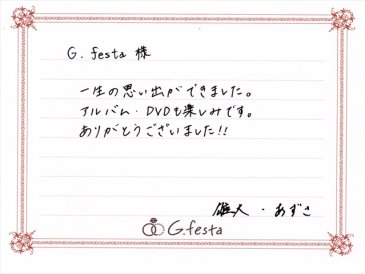 G.festa 様
一生の思い出ができました。
アルバム・DVDも楽しみです。
ありがとうございました!!
雄大・あずさ
G.festa